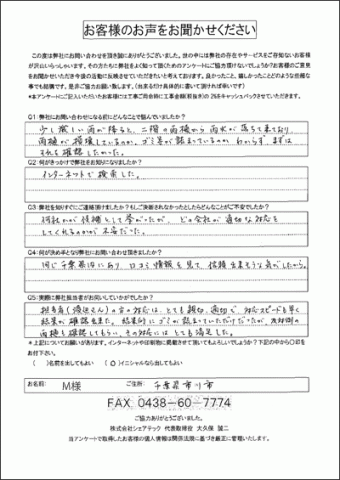 お客様のお声をお聞かせください
この度は弊社にお問い合わせを頂き誠にありがとうございました。世の中には弊社の存在やサービスをご存知ないお客様
が沢山いらっしゃいます。その方たちに弊社をよく知って頂くためのアンケートにご協力頂けないでしょうか?お客様のご意見
をお聞かせいただき今後の活動に反映させていただきたいと考えております。良かったこと、嬉しかったことどのような些細な
事でも結構です。是非ご協力お願い致します。(出来るだけ具体的に書いて頂ければ幸いです)
*本アンケートにご記入いただいたお客様には工事ご用命時に工事金額(税抜き)の2%をキャッシュバックさせていただきます。
Q1 弊社にお問い合わせになる前にどんなことで悩んでいましたか?
少し激しい雨が降ると、二階の雨樋から雨水が落ちて来ており
雨樋が損壊しているのか、ゴミ等が詰まっているのか わからず、まずは
それを確認したかった。
Q2 何がきっかけで弊社をお知りになりましたか?
インターネットで検索した。
Q3 弊社を知りすぐにご連絡頂けましたか?もしご決断されなかったとしたらどんなことがご不安でしたか?
何社かが候補として挙がったが、どの会社が適切な対応を
してくれるのかが不安だった。
Q4 何が決め手となり弊社にお問い合わせ頂きましたか?
同じ千葉県内にあり、口コミ情報を見て、信頼出来そうな気がしたから。
Q5 実際に弊社担当者がお伺いしていかがでしたか?
の方の対応は、とても親切、適切で、対応スピードも早く
結果が確認出来た。結果的にゴミが詰まっていただけだったが、反対側の
雨樋も確認してもらい、その対応にはとても満足した。
*上記についてお願いがあります。インターネットや印刷物に掲載させて頂いてもよろしいでしょうか?下記の中から○印を
お付け下さい。
( )名前を出してもよい (○)イニシャルなら出してもよい
お名前: M様 ご住所: 千葉県市川市
FAX 0438-60-7774
ご協力ありがとうございました。
株式会社シェアテック 代表取締役 大久保 誠二
当アンケートで取得したお客様の個人情報は関係法規に基づき厳正に管理いたします。